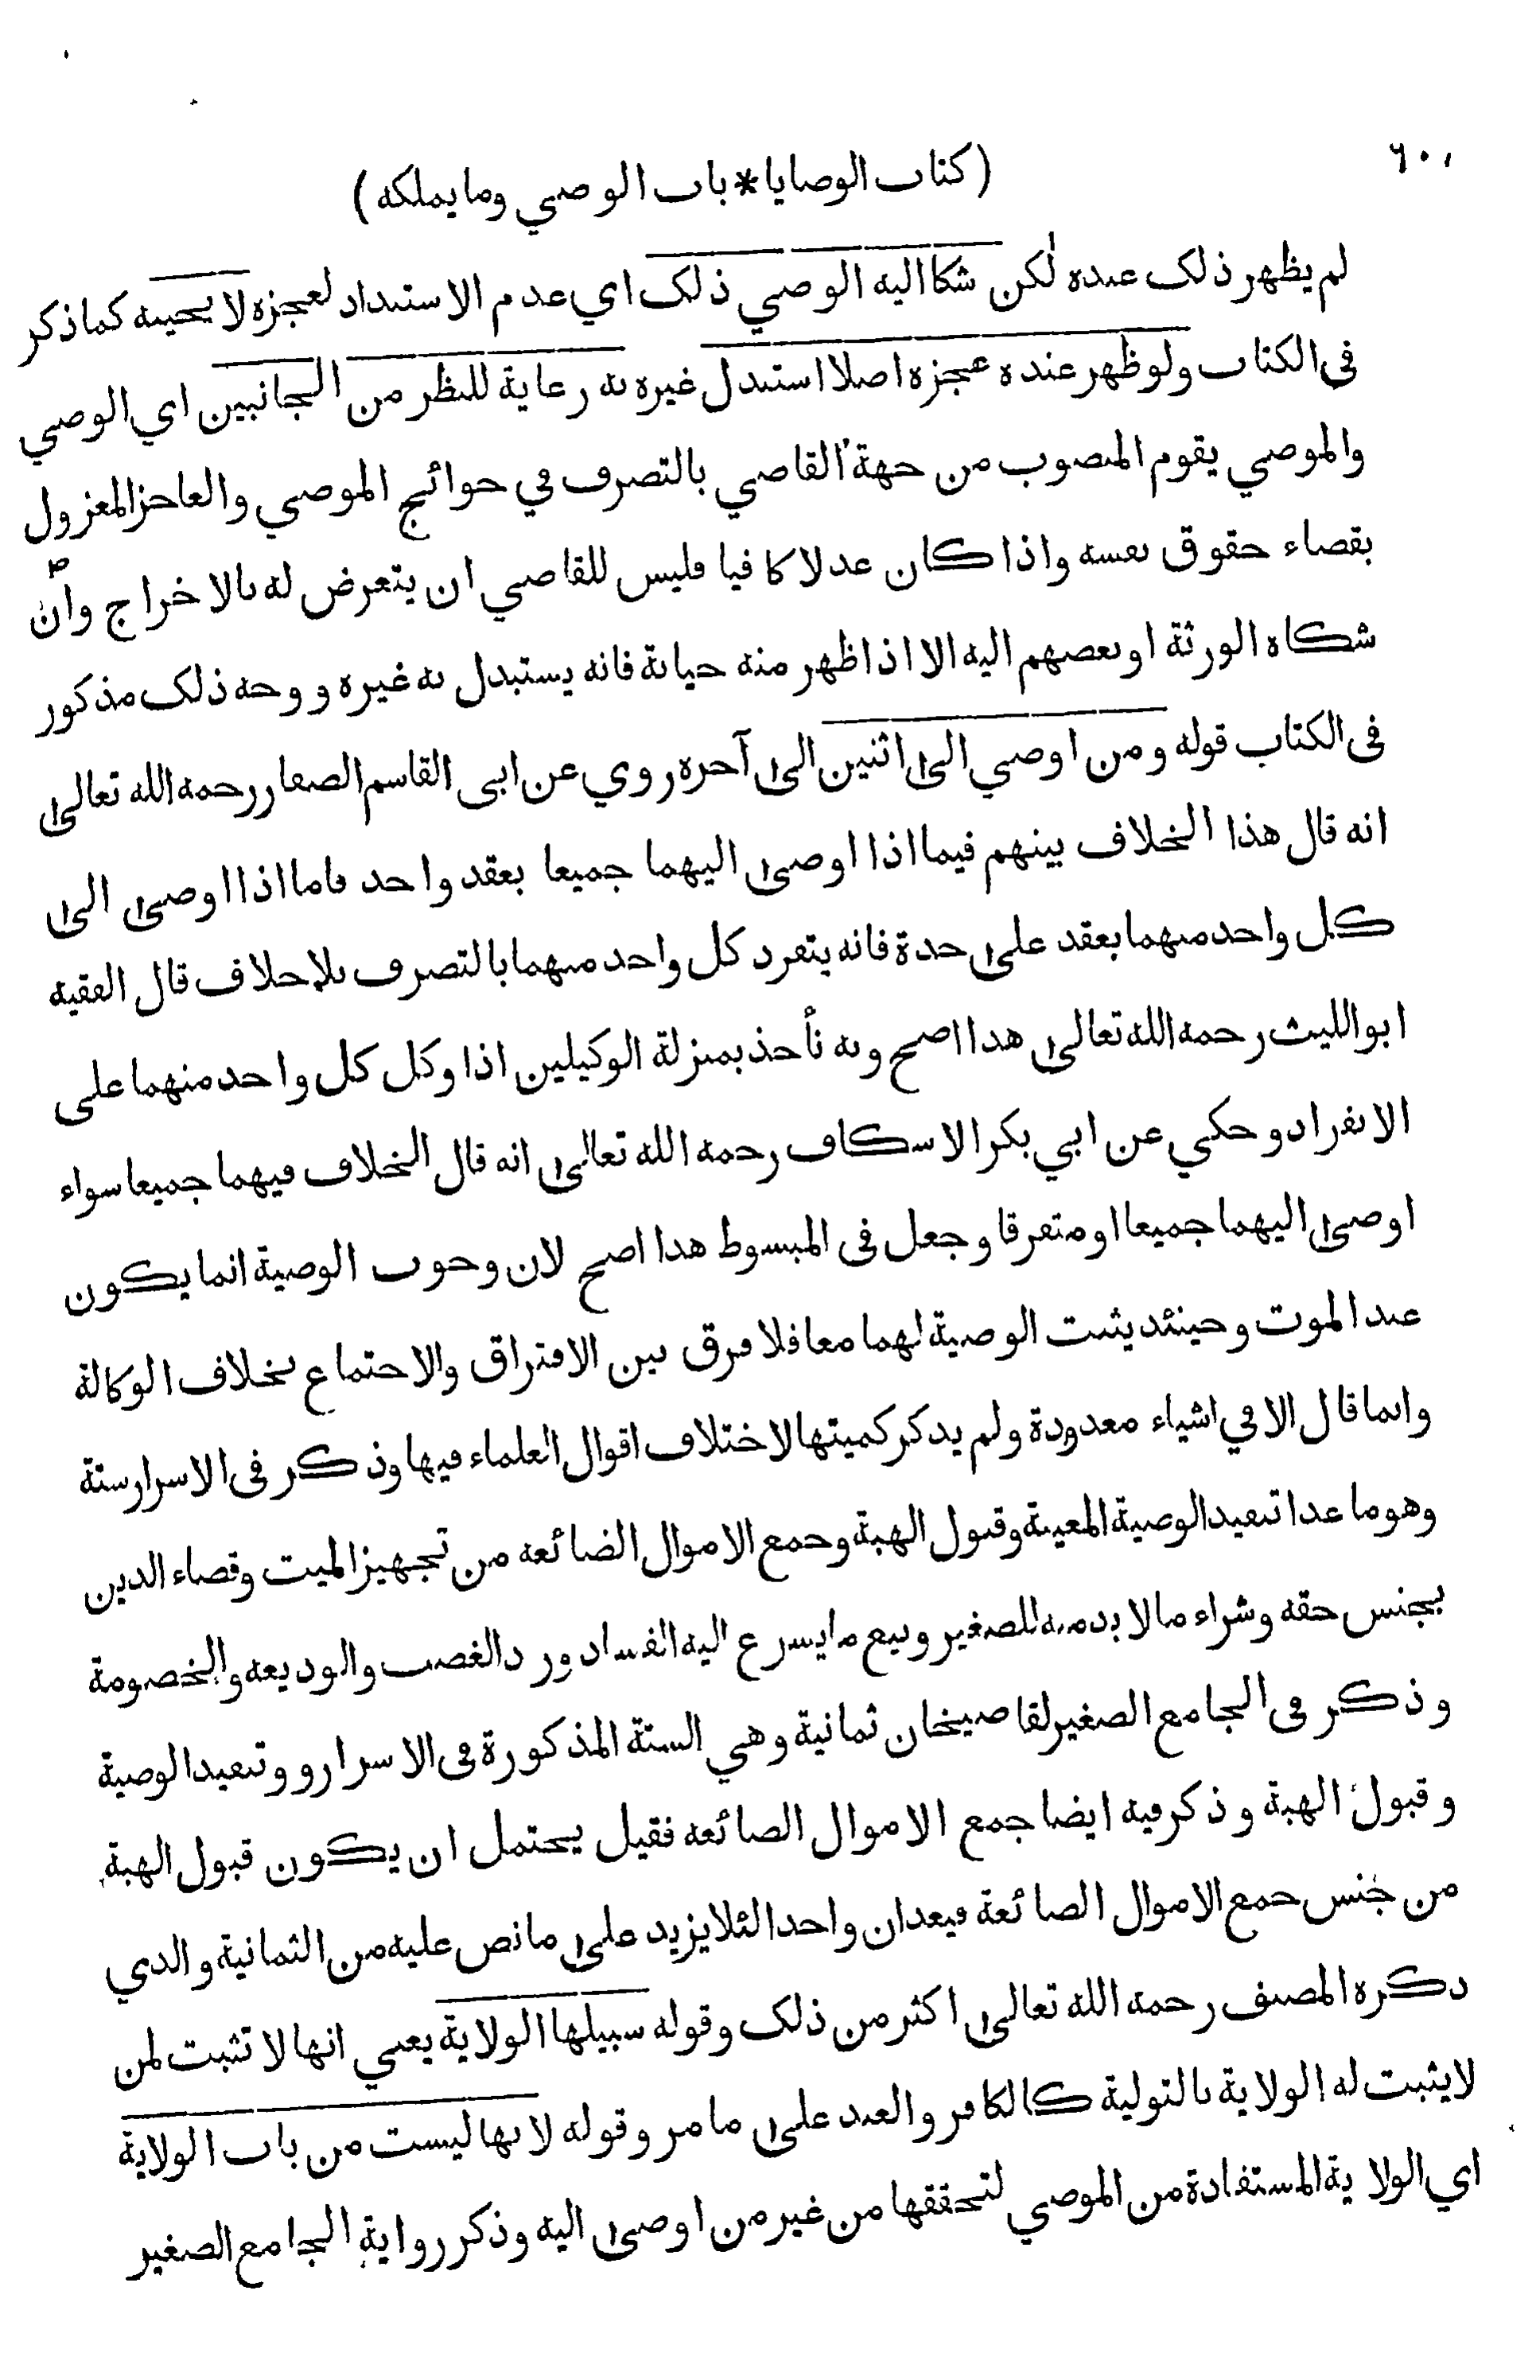 ٦٠١
( كتاب الوصايا * باب الوصي وما يملكه )
لم يظهر ذلك عنده لكن شكا اليه الوصي ذلك اي عدم الاستبداد لعجزه لا يجيبه كما ذكر
في الكتاب ولو ظهر عنده عجزه اصلا استبدل غيره به رعاية للنظر من الجانبين اي الوصي
والموصي يقوم المنصوب من جهة القاضي بالتصرف في حوائج الموصي والعاجز المعزول
بقضاء حقوق نفسه واذا كان عدلا كافيا فليس للقاضي ان يتعرض له بالاخراج وان
شكاه الورثة او بعضهم اليه الا اذا ظهر منه خيانة فانه يستبدل به غيره ووجه ذلك مذكور
في الكتاب قوله ومن اوصي الى اثنين الى آخره روي عن ابي القاسم الصفار رحمه الله تعالى
انه قال هذا الخلاف بينهم فيما اذا اوصى اليهما جميعا بعقد واحد فاما اذا اوصى الى
كل واحد منهما بعقد على حدة فانه يتفرد كل واحد منهما بالتصرف بلا خلاف قال الفقيه
ابو الليث رحمه الله تعالى هذا اصح وبه نأخذ بمنزلة الوكيلين اذا وكل كل واحد منهما على
الانفراد وحكي عن ابي بكر الاسكاف رحمه الله تعالى انه قال الخلاف فيهما جميعا سواء
اوصى اليهما جميعا او متفرقا وجعل في المبسوط هذا اصح لان وجوب الوصية انما يكون
عند الموت وحينئذ يثبت الوصية لهما معا فلا فرق بين الافتراق والاجتماع بخلاف الوكالة
وانما قال الا في اشياء معدودة ولم يذكر كميتها لاختلاف اقوال العلماء فيها وذكر في الاسرار ستة
وهو ما عدا تنفيذ الوصية المعينة وقبول الهبة وجمع الاموال الضائعه من تجهيز الميت وقضاء الدين
بجنس حقه وشراء ما لا بد منه للصغير وبيع ما يسرع اليه الفساد ورد الغصب والوديعه والخصومة
وذكر في الجامع الصغير لقاضيخان ثمانية وهي الستة المذكورة في الاسرار و وتنفيذ الوصية
وقبول الهبة وذكر فيه ايضا جمع الاموال الضائعه فقيل يحتمل ان يكون قبول الهبة
من جنس جمع الاموال الضائعة فيعدان واحدا لئلا يزيد على ما نص عليه من الثمانية والذي
ذكره المصنف رحمه الله تعالى اكثر من ذلك وقوله سبيلها الولاية يعني انها لا تثبت لمن
لا يثبت له الولاية بالتولية كالكافر والعبد على ما مر وقوله لانها ليست من باب الولاية
اي الولاية المستفادة من الموصي لتحققها من غير من اوصى اليه وذكر رواية الجامع الصغير